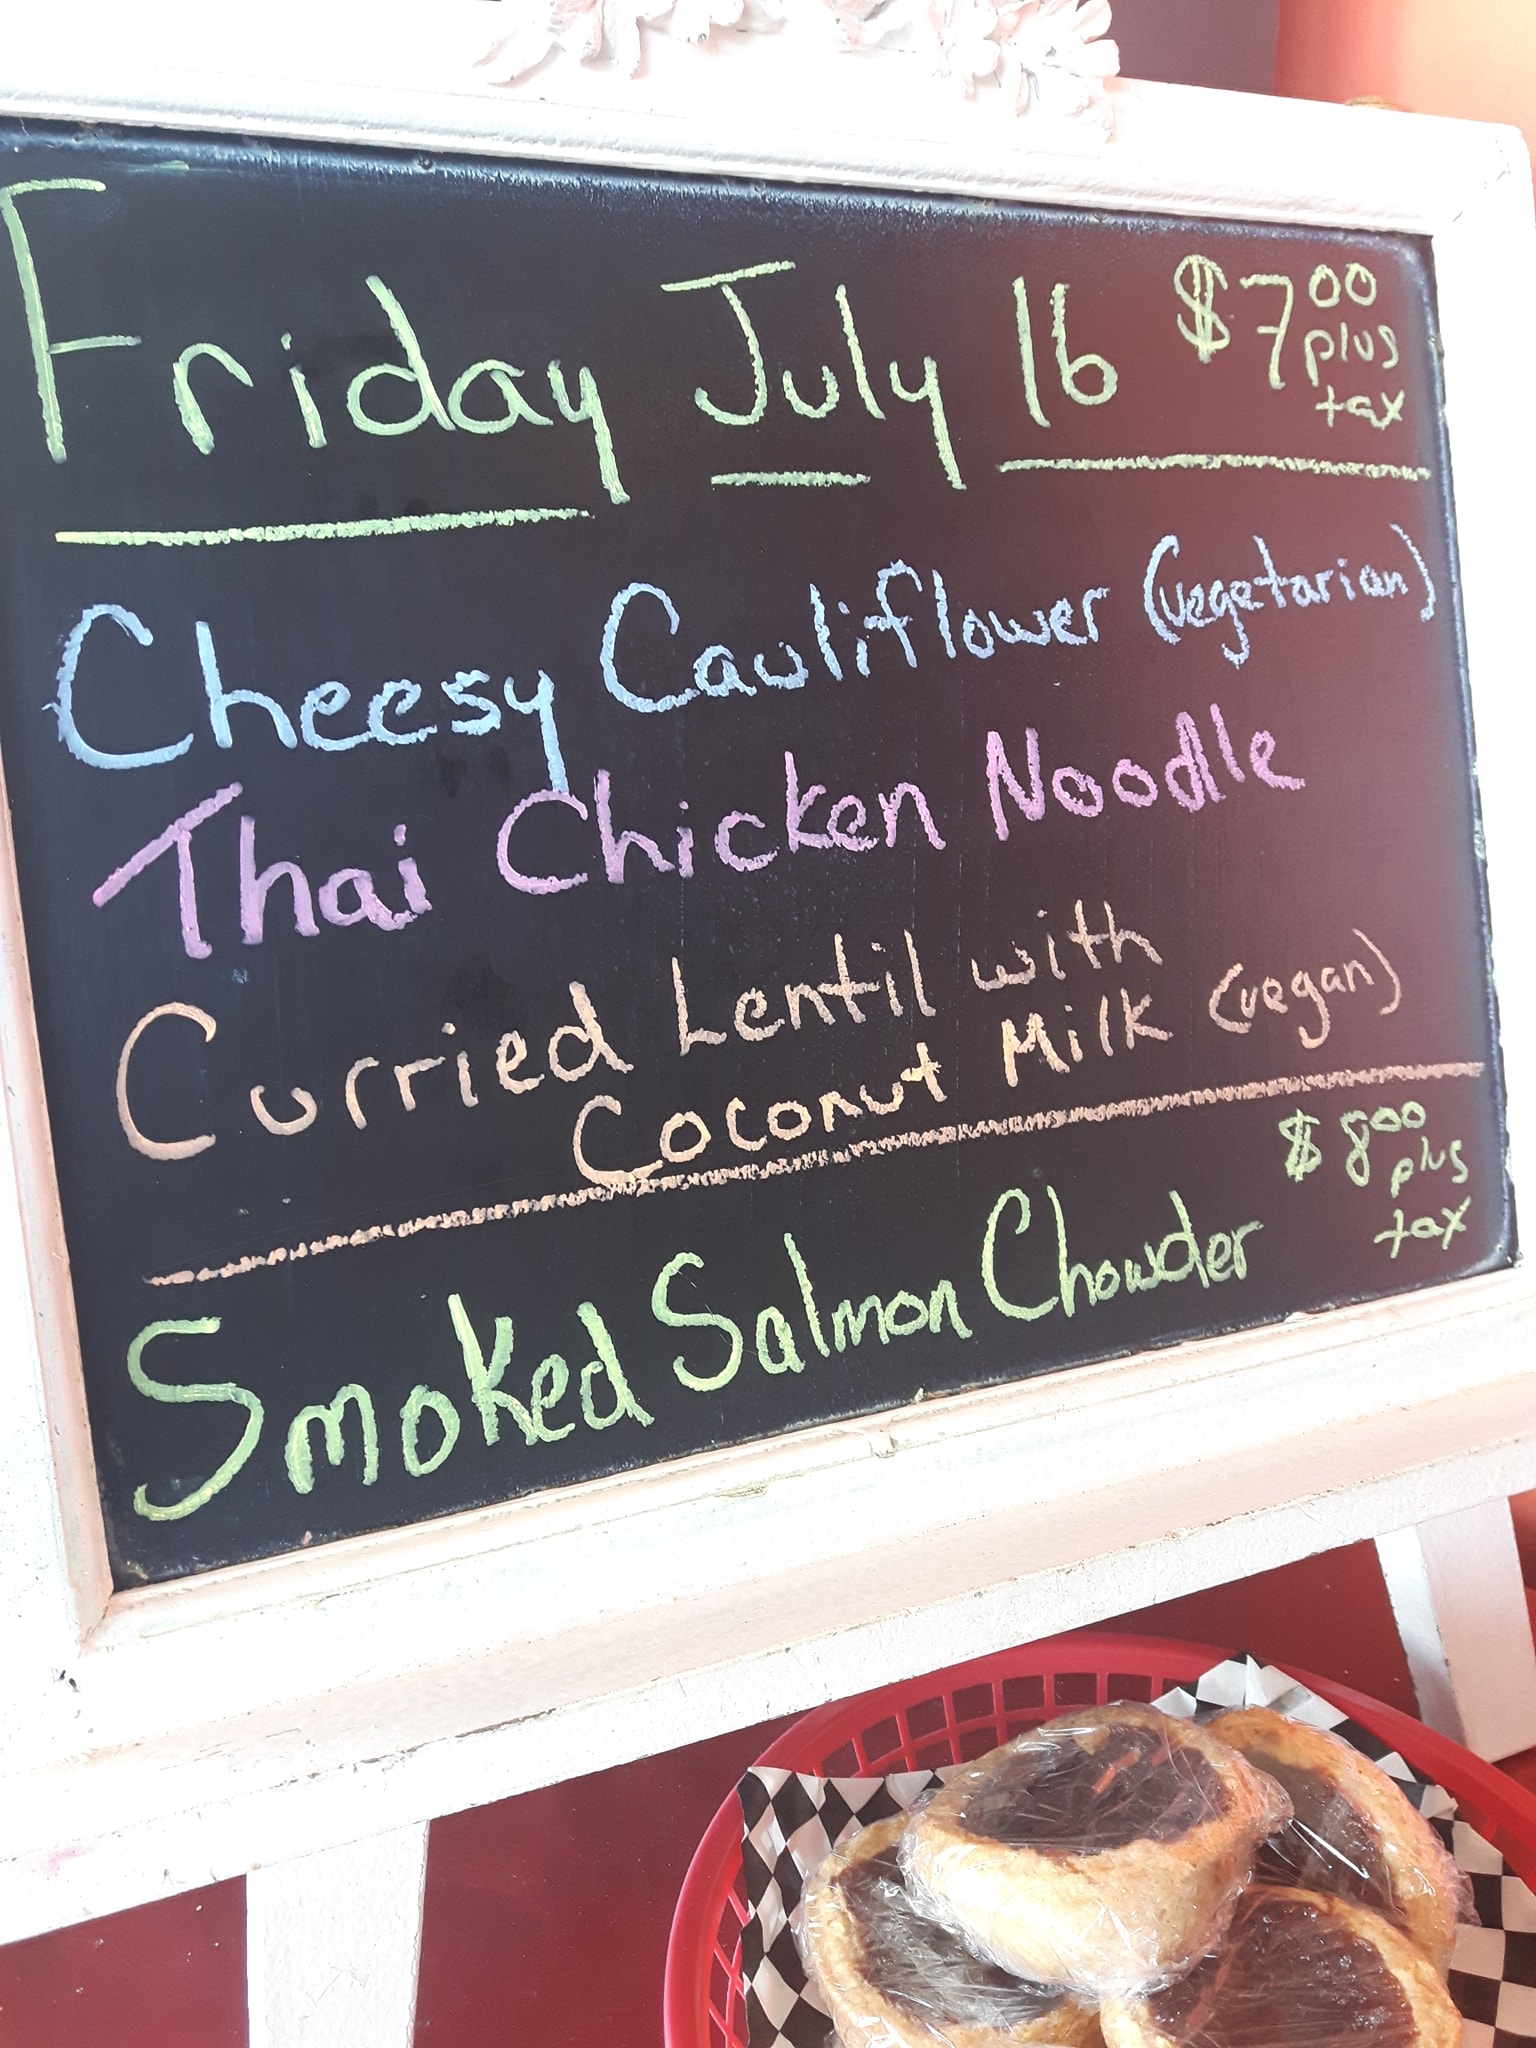 Friday July 16 $7.00 plus tax
Cheesy Cauliflower (vegetarian)
Thai Chicken Noodle
Curried Lentil with
Coconut Milk (vegan)
$8.00 plus tax
Smoked Salmon Chowder